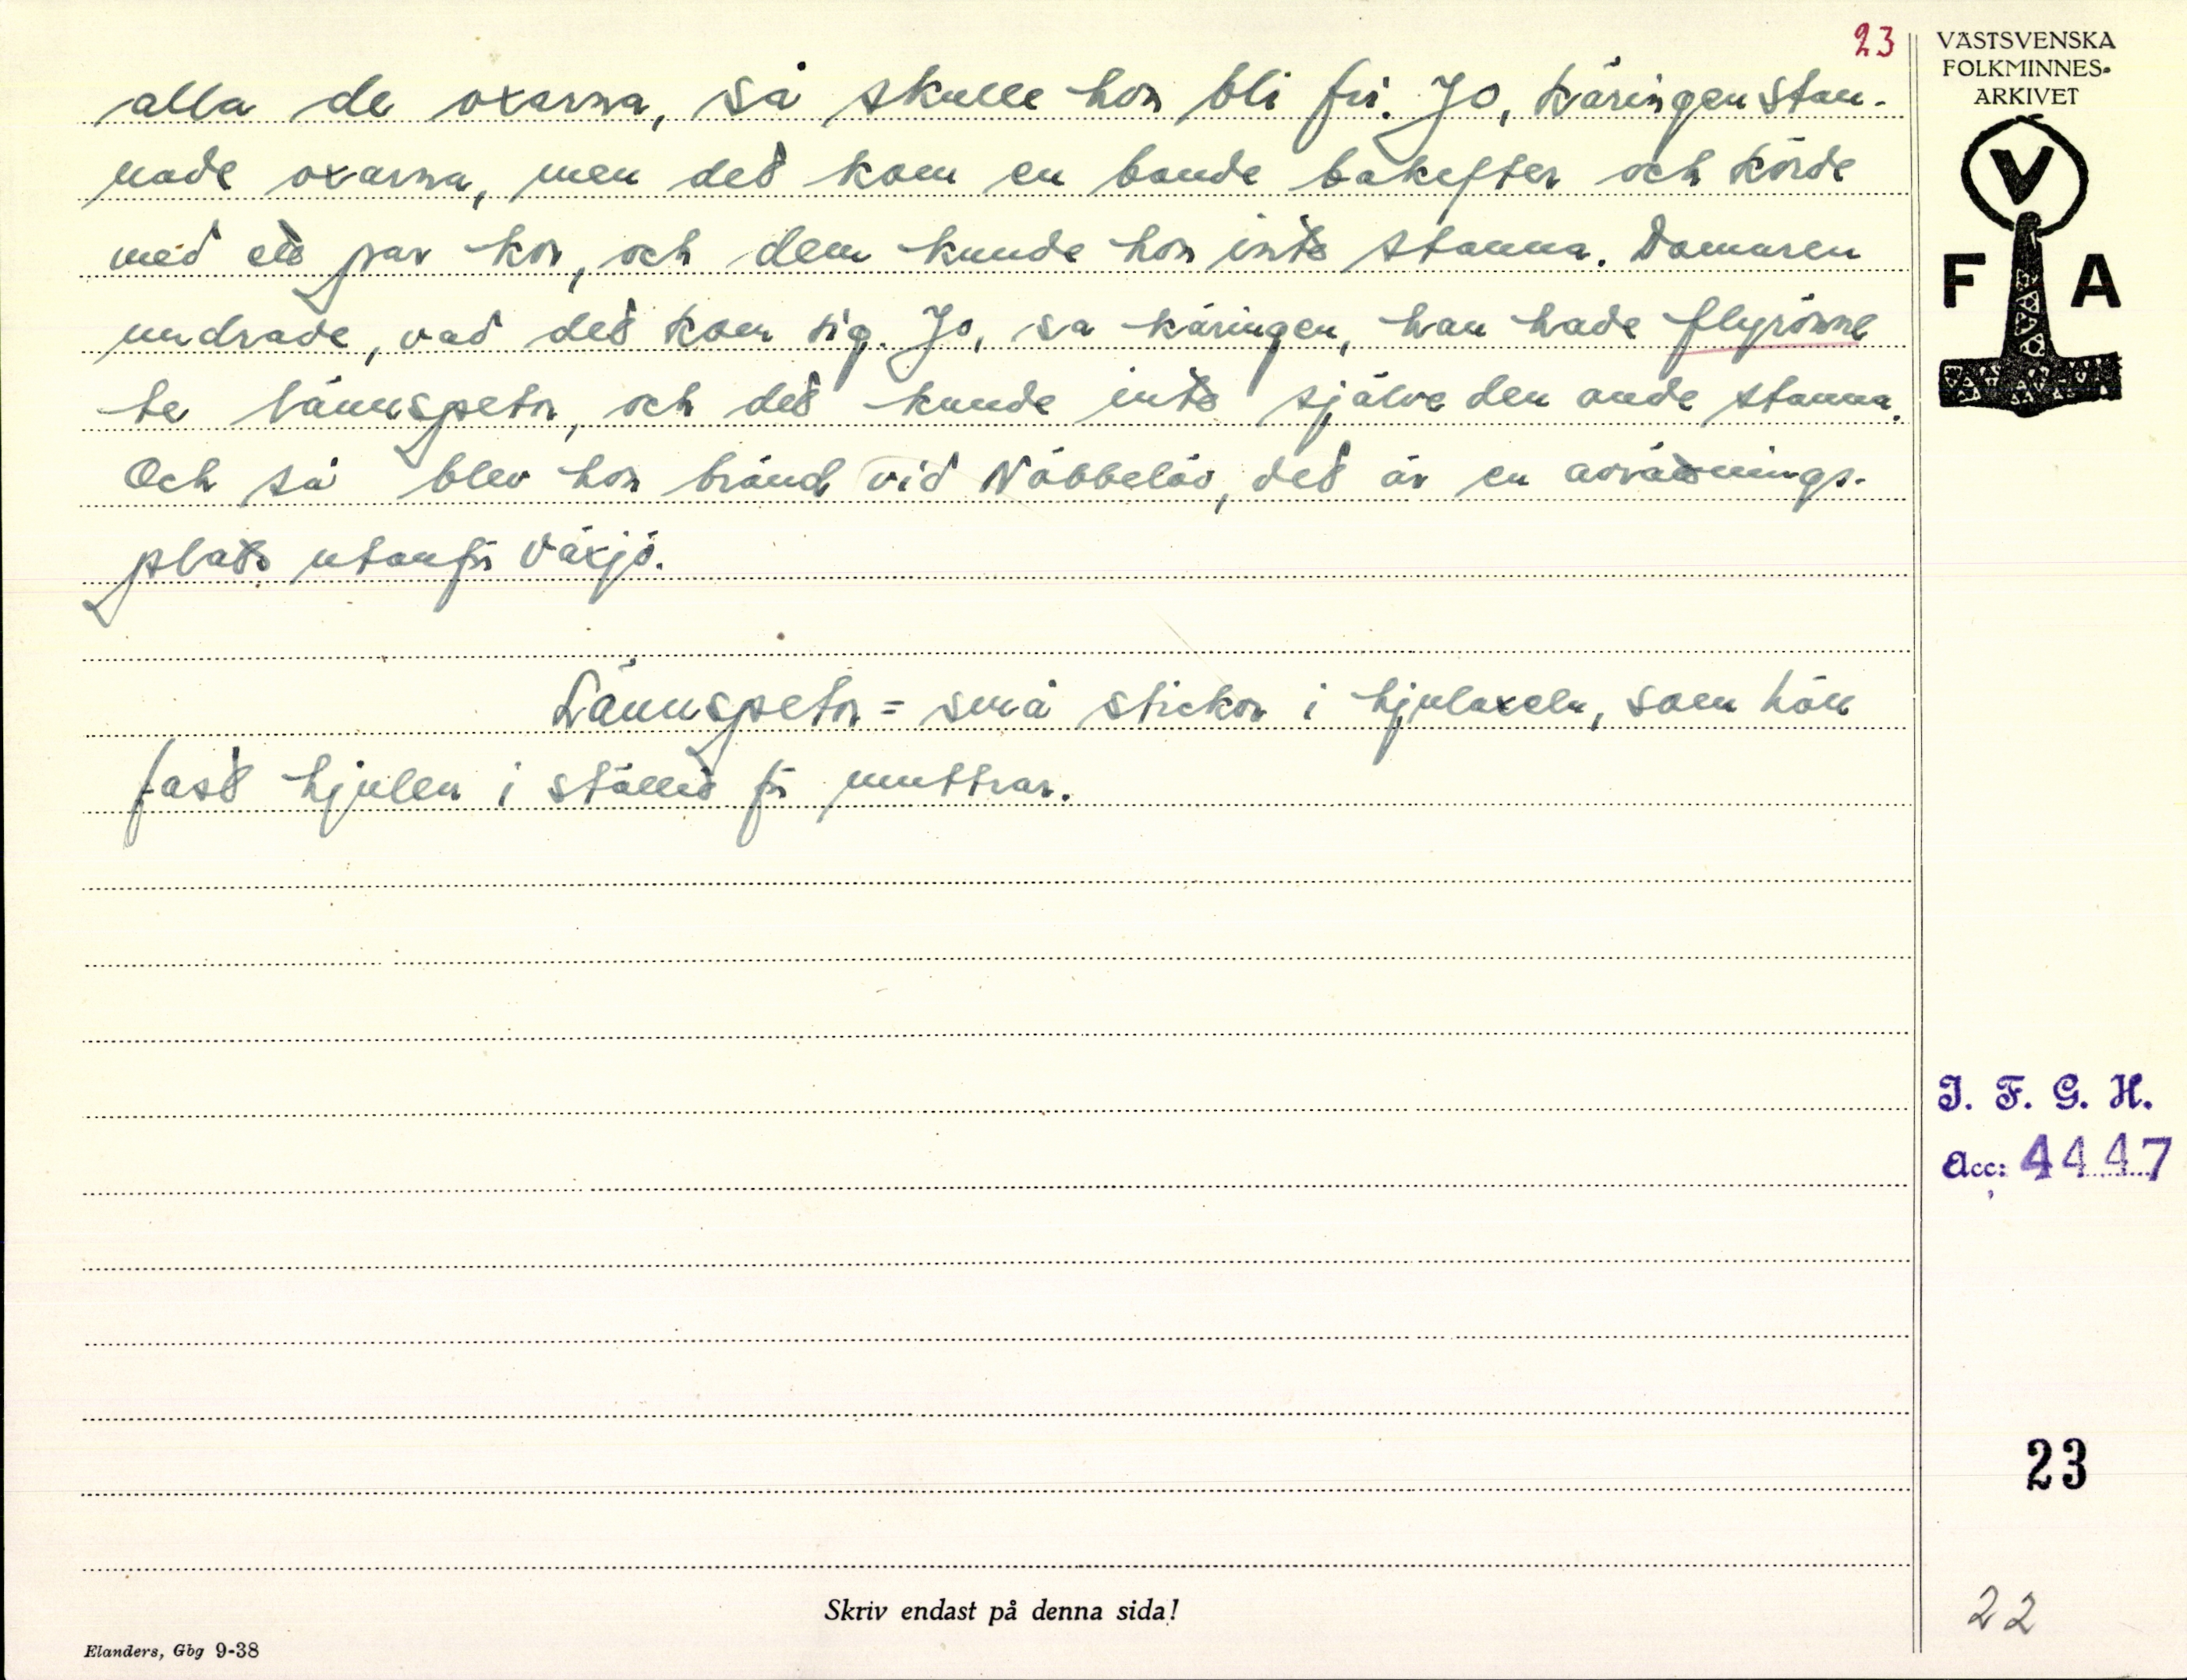 23
alla de oxarna, så skulle hon bli fri. Jo, käringen stan-
nade oxarna, men det kom en bonde bakefter och körde
med ett par kor, och dem kunde hon inte stanna. Domaren
undrade, vad det kom sig. Jo, sa käringen, han hade flyrönne
te lännspetor, och det kunde inte själve den onde stanna.
Och så blev hon bränd vid Nöbbelöv, det är en avrättnings-
plats utanför Växjö.
Lännspetor = små stickor i hjulaxeln, som höll
fast hjulen i stället för muttrar.
VÄSTSVENSKA
FOLKMINNES-
ARKIVET
V
F A
I. F. G. H.
Acc: 4447
23
22
Skriv endast på denna sida!
Elanders, Gbg 9-38